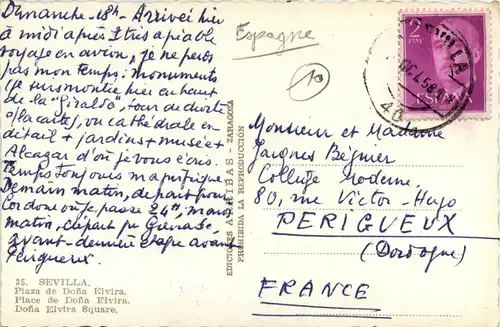 Dimanche 18h - Arrivée hier
à midi après 1 très agréable
voyage en avion, je ne perds
pas mon temps: monuments
(je suis montée hier en haut
de la "Giralda", tour de droite
s/ la carte), vu cathédrale en
détail + jardins + musée +
Alcazar d'où je vous écris.
Temps toujours magnifique
Demain matin, départ pour
Cordoue où je passe 24h, mardi
matin, départ pr Grenade,
avant-dernière étape avant
Périgueux.
35. SEVILLA.
Plaza de Doña Elvira.
Place de Doña Elvira.
Doña Elvira Square.
EDICIONES ARRIBAS - ZARAGOZA
PROHIBIDA LA REPRODUCCION
Espagne
10
2
PTAS
ESPAÑA
SEVILLA
Monsieur et Madame
Jacques Béguier
Collège Moderne
80, rue Victor-Hugo
PERIGUEUX
(Dordogne)
FRANCE